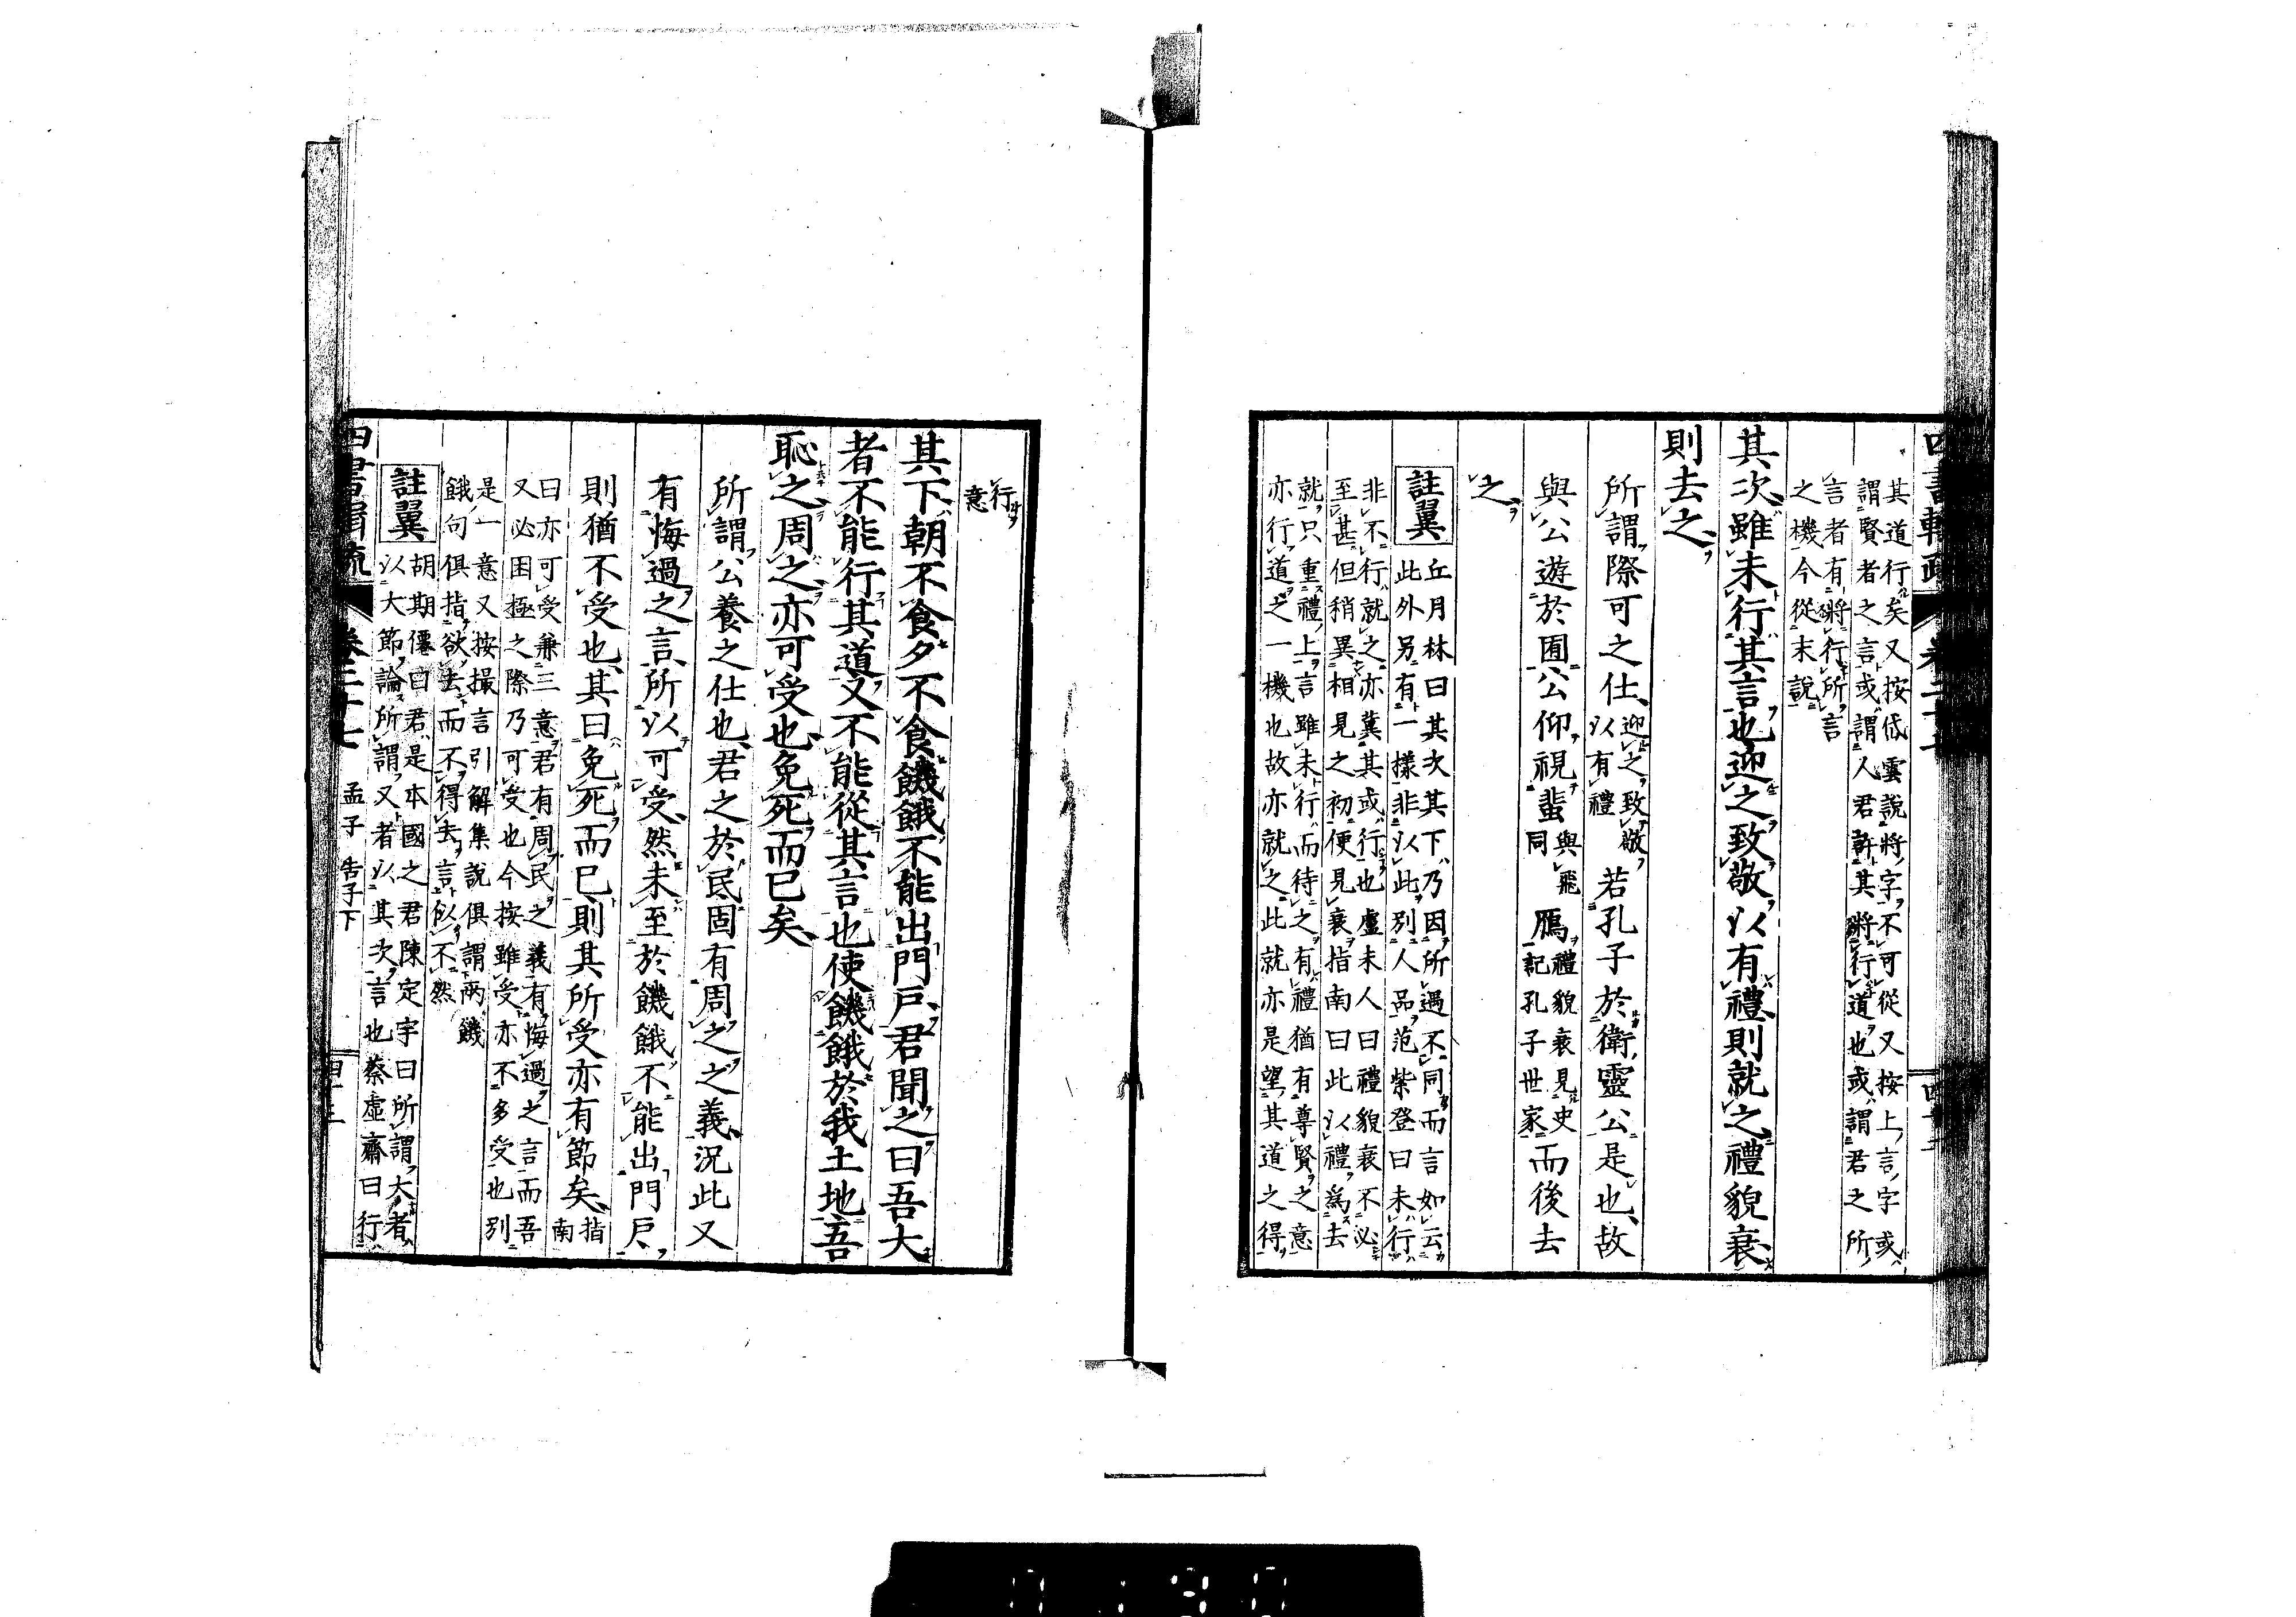 四書輯疏
卷二十七
四十二
其道行矣又按低雲說將字不可從又按上言字或
謂賢者之言或謂人君許其將行道也或謂君之所
言者有將行所言
之機今從末說
其次雖未行其言也迎之致敬以有禮則就之禮貌衰
則去之
所謂際可之仕迎之致敬以有禮若孔子於衛靈公是也故
與公遊於囿公仰視蜚與飛同鴈禮貌衰見史記孔子世家而後去
之
註翼
丘月林曰其次其下乃因所遇不同而言如云
此外另有一樣非以此別人品范紫登曰未行
非不行就之亦冀其或行也盧未人曰禮貌衰不必
至甚但稍異相見之初便見衰指南曰此以禮爲去
就只重禮上言雖未行而待之有禮猶有尊賢之意
亦行道之一機也故亦就之此就亦是望其道之得
行
意
其下朝不食夕不食饑餓不能出門戶君聞之曰吾大
者不能行其道又不能從其言也使饑餓於我土地吾
恥之周之亦可受也免死而已矣
所謂公養之仕也君之於民固有周之之義況此又
有悔過之言所以可受然未至於饑餓不能出門戶
則猶不受也其曰免死而已則其所受亦有節矣指南
曰亦可受兼三意君有周民之義有悔過之言而吾
又必困極之際乃可受也今按雖受亦不多受也別
是一意又按撮言引解集說俱謂兩饑
餓句俱指欲去而不得去言似不然
註翼
胡期僊曰君是本國之君陳定宇曰所謂大者
以大節論所謂又者以其次言也蔡虛齋曰行
四書輯疏
卷二十七
孟子 告子下
四十三